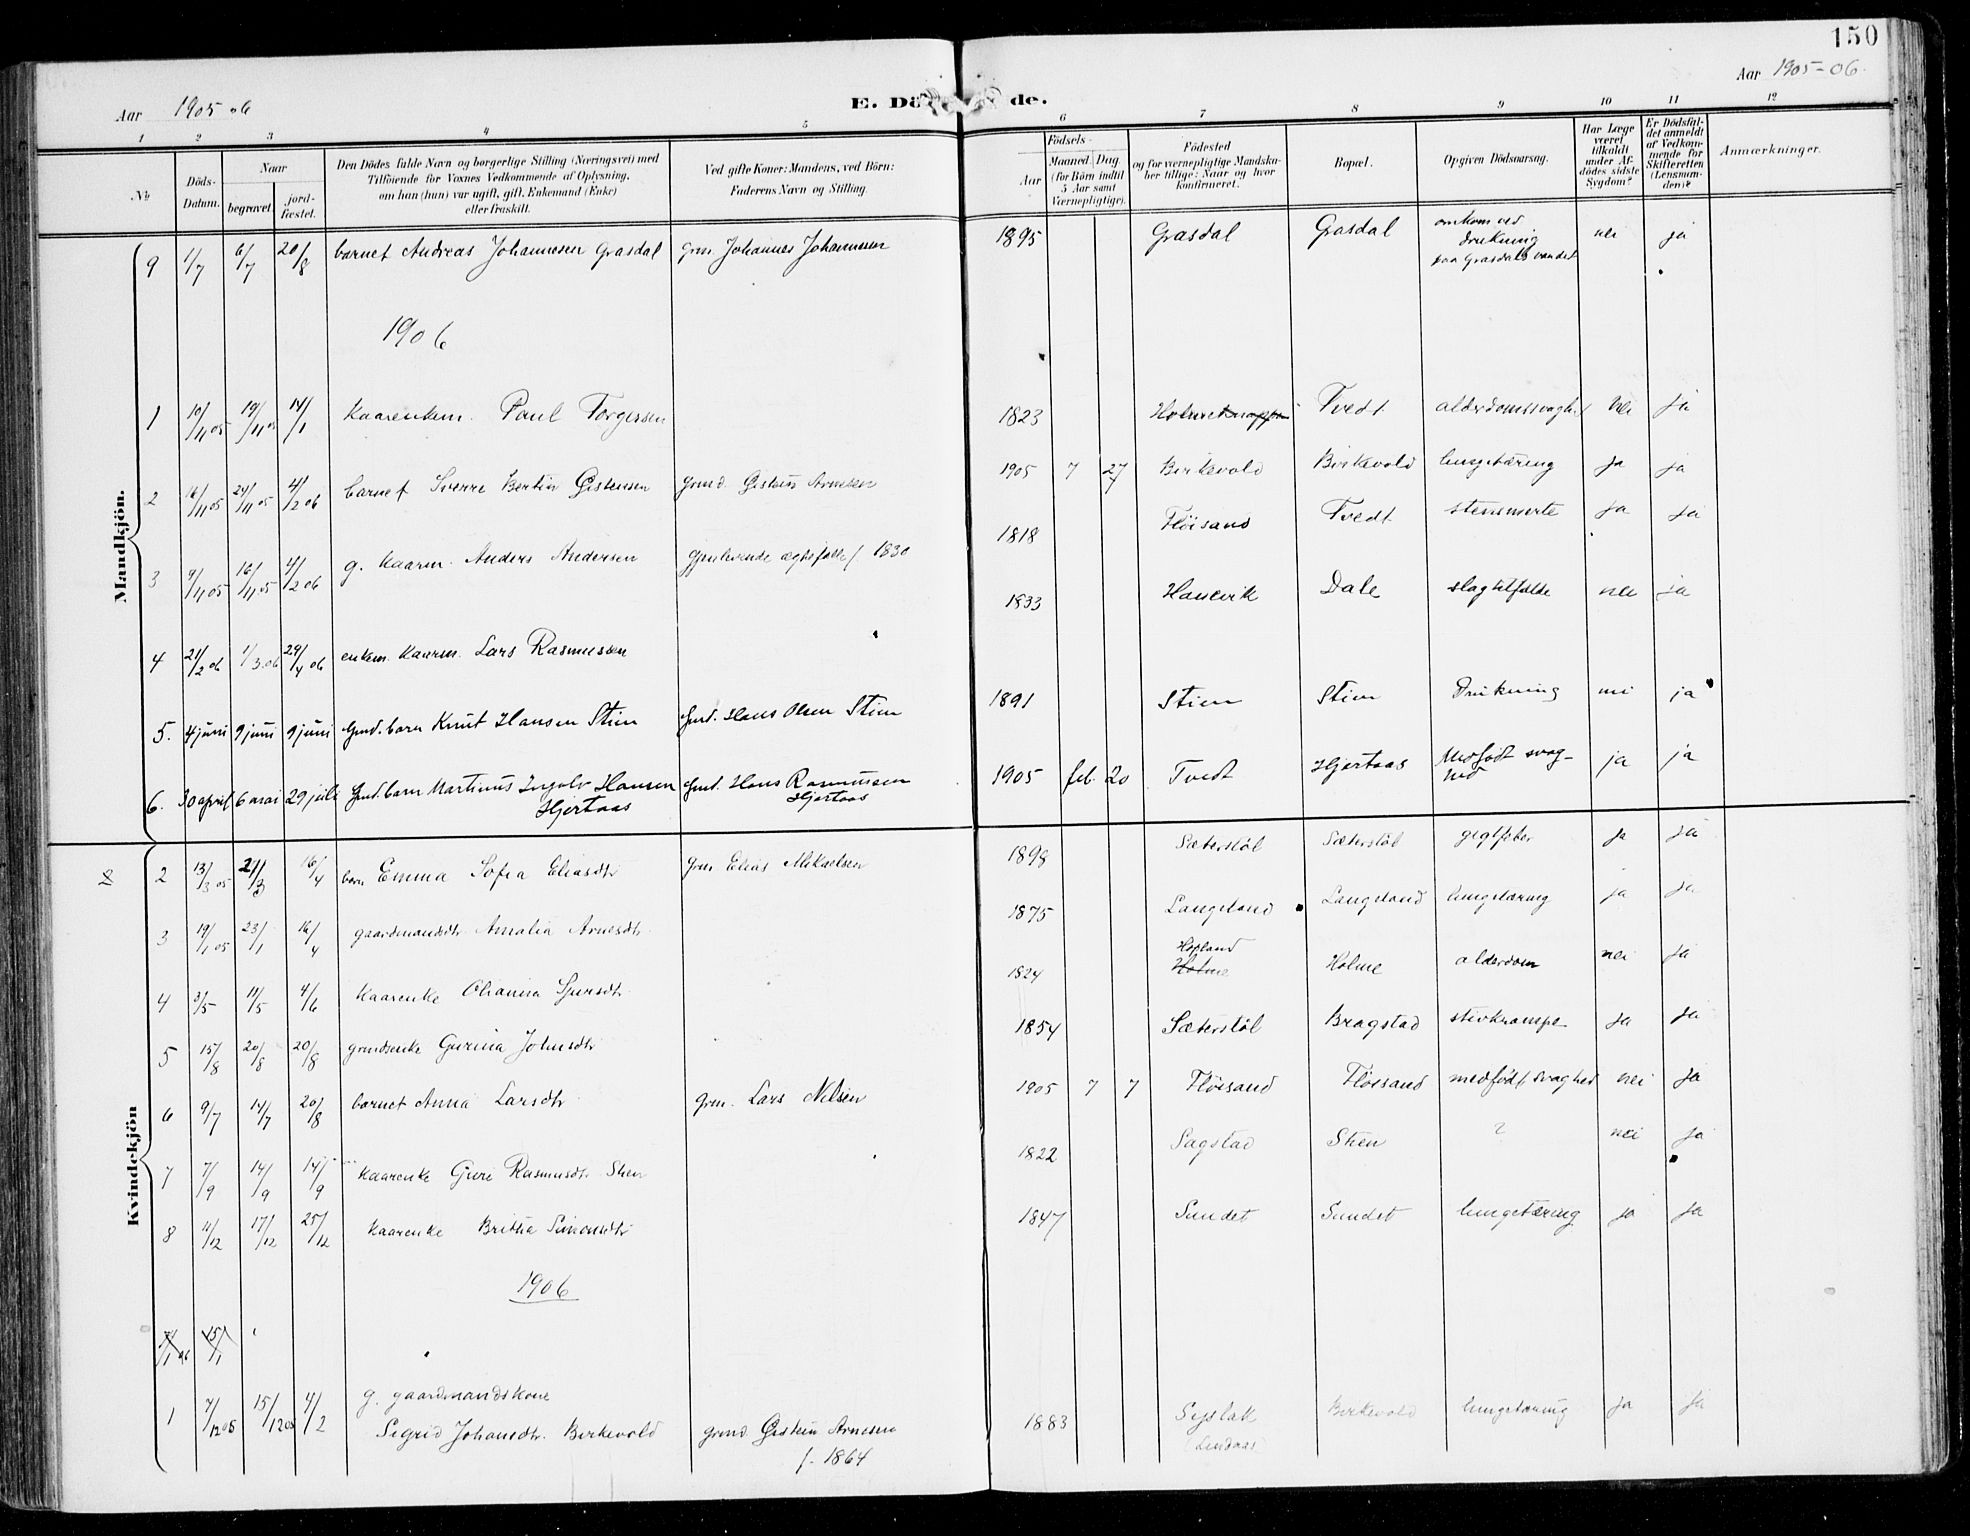 150
Aar 1905 06
E. Dö de.
Aar 1905-06.
1 2 3 4 5 6 7 8 9 10 11 12
No
Döds-Datum.
Naar
begravet.
jord-fæstet.
Den Dödes fulde Navn og borgerlige Stilling (Næringsvei) med
Tilföiende for Voxnes Vedkommende af Oplysning,
om han (hun) var ugift, gift, Enkemand (Enke)
eller fraskilt.
Ved gifte Koner: Mandens, ved Börn:
Faderens Navn og Stilling.
Födsels-
Aar
Maaned. Dag.
(for Börn indtil
5 Aar samt
Værnepligtige).
Födested
og for værnepligtige Mandska-
ber tillige: Naar og hvor
konfirmeret.
Bopæl.
Opgiven Dödsaarsag.
Har Læge
været
tilkaldt
under Af-
dödes sidste
Sygdom?
Er Dödsfal-
det anmeldt
af Vedkom-
mende for
Skifteretten
(Lensman-
den)?
Anmærkninger.
Mandkjön.
9 1/7 6/7 20/8 barnet Andreas Johannesen Grasdal gm. Johannes Johannesen 1895 Grasdal Grasdal omkom ved drukning paa Grasdalsvandet nei ja
1906
1 10/11 05 19/11 05 14/1 Kaarenkem. Paul Torgersen 1823 Holmeknappen Tvedt alderdomssvaghed nei ja
2 16/11 05 24/11 05 4/2 06 barnet Sverre Bertin Gistensen grmd. Gistein Arnesen 1905 7 27 Birkevold Birkevold lungetæring ja ja
3 9/11 05 16/11 05 4/2 06 g. kaarm. Anders Andersen Gjenlevende ægtefælle f. 1830 1818 Fløisand Tvedt stensmerte ja ja
4 21/2 06 1/3 06 29/4 06 enkem. kaarm. Lars Rasmussen 1833 Hanevik Dale slagtilfælde nei ja
5. 4 juni 9 juni 9 juni Gmd. barn Knut Hansen Stien Gmd. Hans Olsen Stien 1891 Stien Stien Drukning nei ja
6. 30 april 6 mai 29 juli Gmd. barn Martinus Ingolv Hansen Hjertaas Gmd. Hans Rasmussen Hjertaas 1905 feb. 20 Tvedt Hjertaas Medfødt svaghed ja ja
Kvindekjön
2 13/3 05 21/3 16/4 barn Emma Sofia Eliasdtr grm Elias Mikaelsen 1898 Sæterstøl Sæterstøl gigtfeber ja ja
3 19/1 05 23/1 16/4 gaardmandsdtr Amalia Arnesdtr. 1875 Langeland Langeland lungetæring ja ja
4 3/5 11/5 4/6 Kaarenke Olianna Sjursdtr. 1824 Hopland Holme Holme alderdom nei ja
5 15/8 20/8 20/8 grmdsenke Gurina Johnsdtr 1854 Sæterstøl Bragstad stivkrampe ja ja
6 9/7 14/7 20/8 barnet Anna Larsdtr grm. Lars Nilsen 1905 7 7 Fløisand Fløisand medfødt svaghed nei ja
7 7/9 14/9 14/9 Kaarenke Guri Rasmusdtr. Stien 1822 Sagstad Stien ? nei ja
8 11/12 17/12 25/12 Kaarenke Britha Simonsdtr 1847 Sundet Sundet lungetæring ja ja
1906
15/1
1 7/12 05 15/12 05 4/2 g. gaardmandskone
Sigrid Johansdtr. Birkevold grmd. Gistein Arnesen 1883 Seslak Birkevold lungetæring ja ja
f. 1864 (Lindaas)